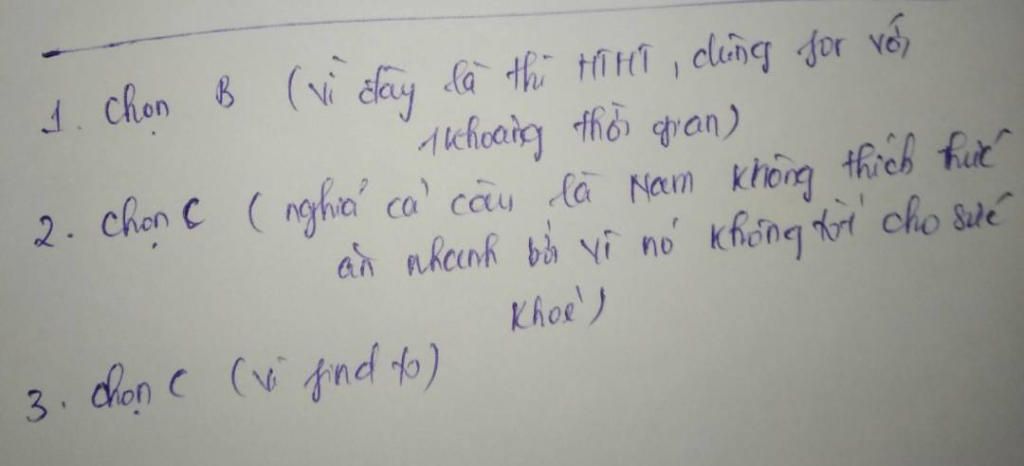 1. Chọn B (vì đây là thì HTHT, dùng for với
1 khoảng thời gian)
2. Chọn C (nghĩa cả câu là Nam không thích thức
ăn nhanh bởi vì nó không tốt cho sức
khoẻ)
3. Chọn C (vì find to)